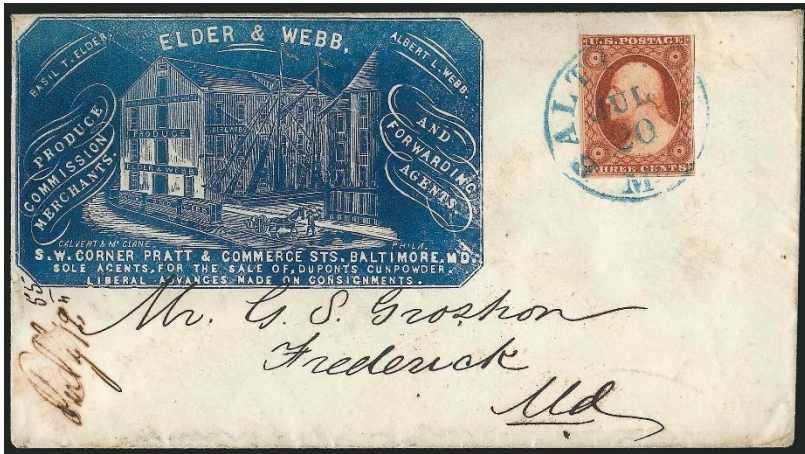 ELDER & WEBB,
BASIL T. ELDER.
ALBERT L. WEBB.
PRODUCE
COMMISSION
MERCHANTS.
AND
FORWARDING
AGENTS.
PRODUCE
ELDER & WEBB
CALVERT & Mc CLANE.
PHILA.
S.W. CORNER PRATT & COMMERCE STS. BALTIMORE, MD.
SOLE AGENTS, FOR THE SALE OF, DUPONTS GUNPOWDER.
LIBERAL ADVANCES MADE ON CONSIGNMENTS.
U.S. POSTAGE
THREE CENTS
BALT
JUL
20
M
Mr. G. S. Groshon
Frederick
Md
July
55